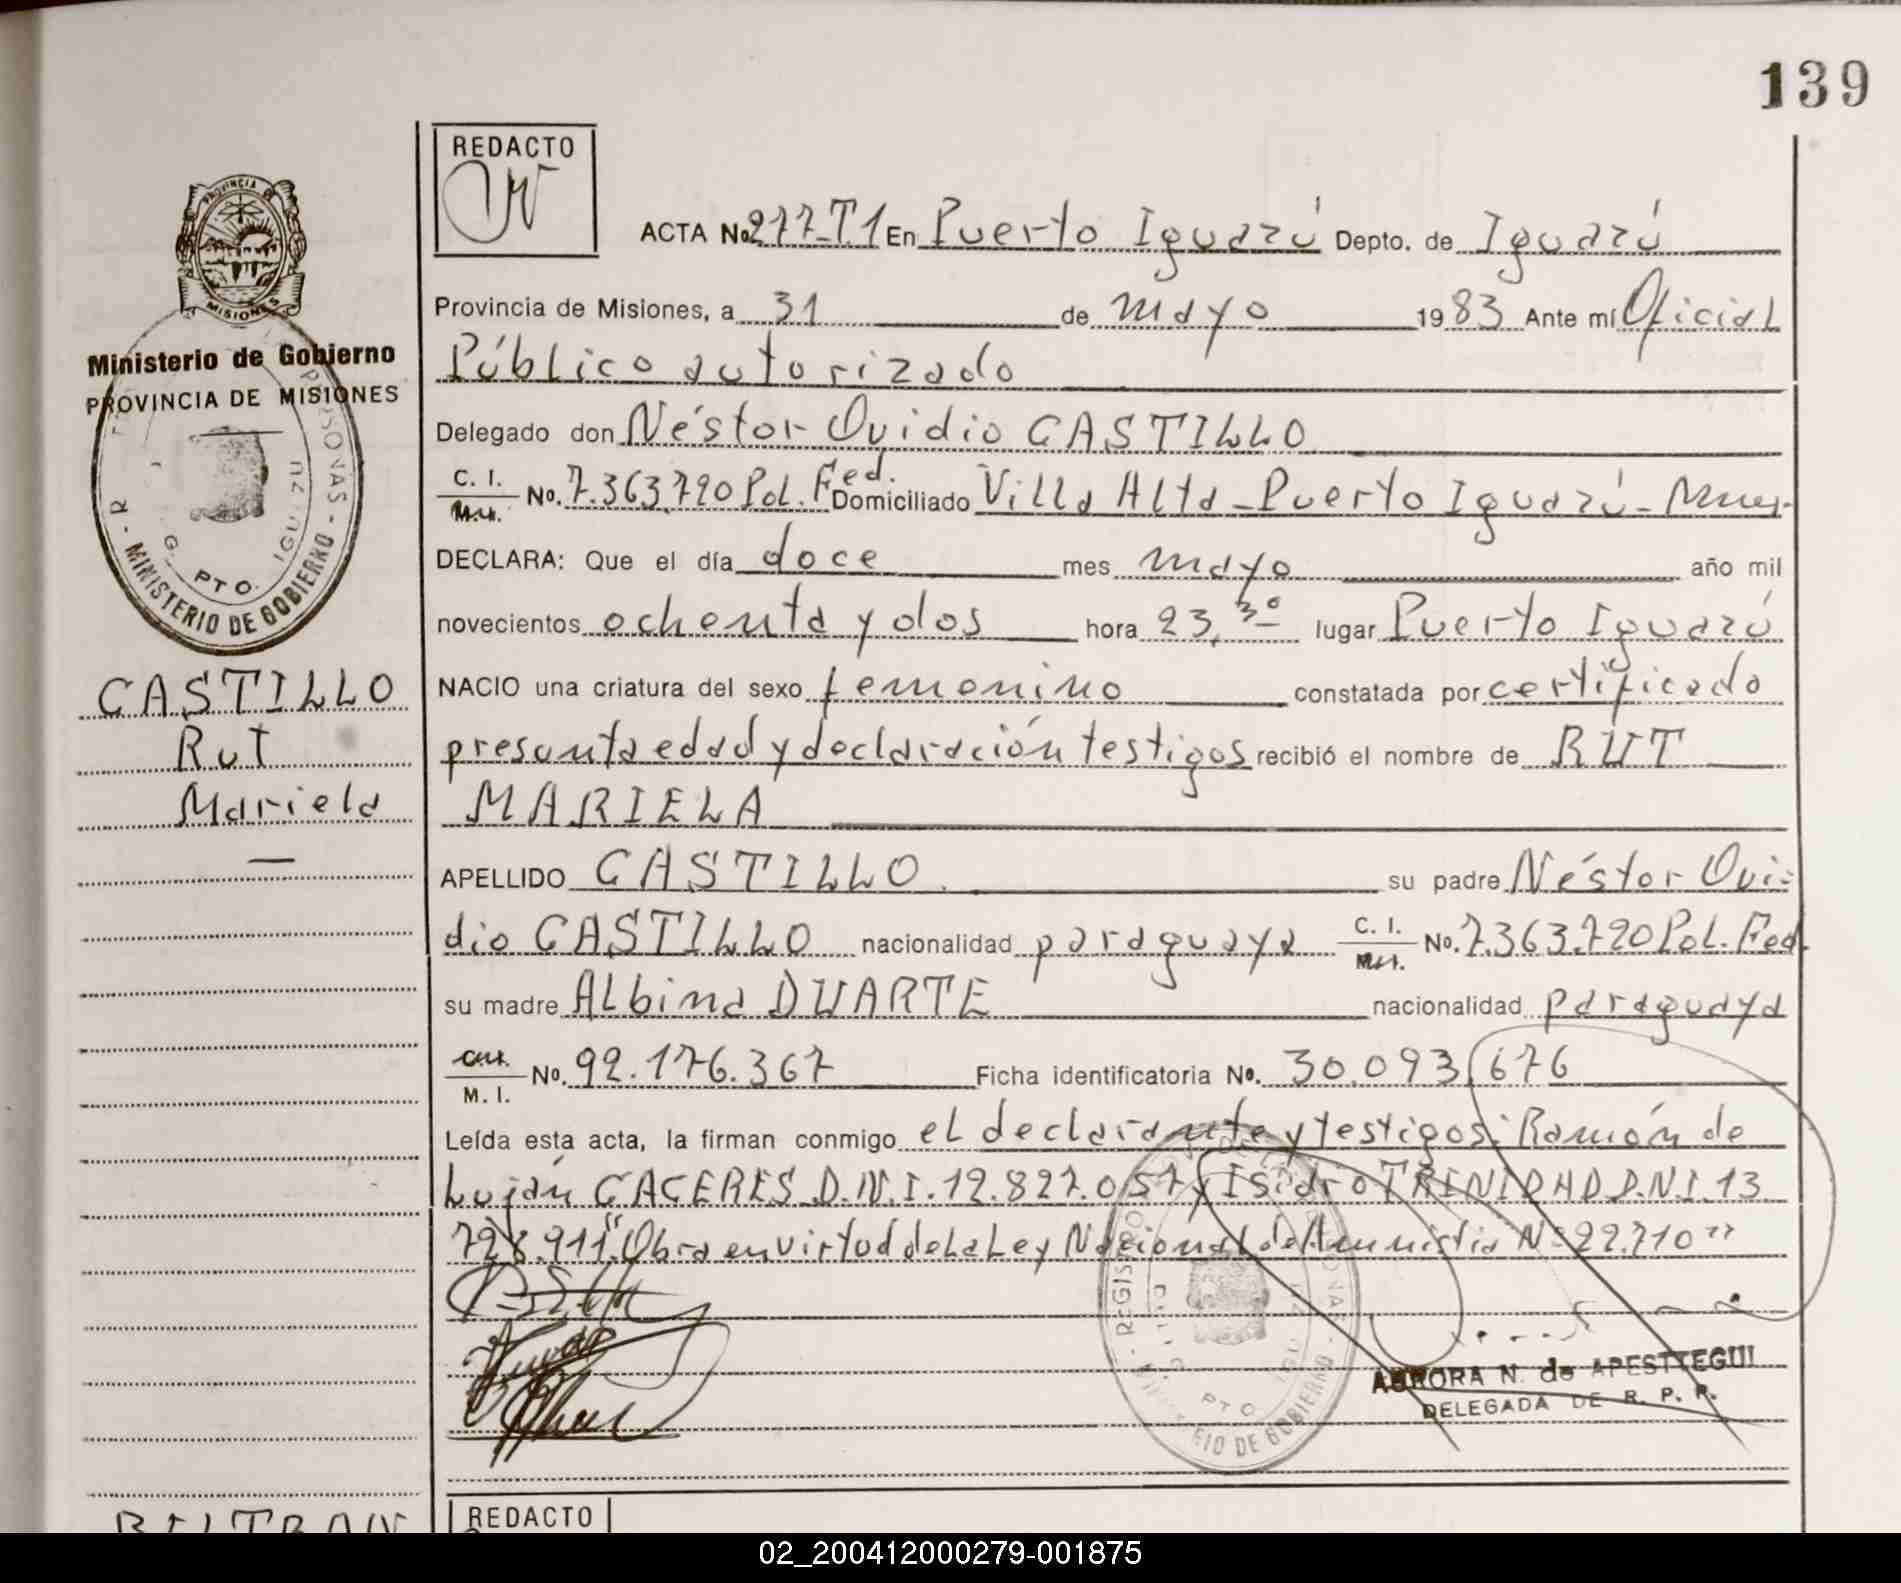 139
REDACTO
PROVINCIA DE
MISIONES
ACTA No 277-T1 En Puerto Iguazú Depto. de Iguazú
Provincia de Misiones, a 31 de mayo 1983 Ante mí Oficial
Público autorizado
Ministerio de Gobierno
PROVINCIA DE MISIONES
Delegado don Néstor Ovidio CASTILLO
C. I. No. 7.363.720 Pol. Fed. Domiciliado Villa Alta - Puerto Iguazú -
DECLARA: Que el día doce mes mayo año mil
novecientos ochenta y dos hora 23,30 lugar Puerto Iguazú
MINISTERIO DE GOBIERNO
PTO. IGUAZU
CASTILLO
Rut
Mariela
NACIO una criatura del sexo femenino constatada por certificado
presunta edad y declaración testigos recibió el nombre de RUT
MARIELA
APELLIDO CASTILLO su padre Néstor Ovi-
dio CASTILLO nacionalidad paraguaya C. I. No. 7.363.720 Pol. Fed.
su madre Albina DUARTE nacionalidad paraguaya
M. I. No. 92.176.367 Ficha identificatoria No. 30.093.676
Leída esta acta, la firman conmigo el declarante y testigos: Ramón de
Luján CACERES D.N.I. 12.827.057 y Isidro TRINIDAD D.N.I. 13
728.911. "Obra en virtud de la Ley Nacional de Amnistia Nº 22.710"
AURORA N. de APESTTEGUI
DELEGADA DE R. P. P.
REDACTO
BELTRAN
02_200412000279-001875